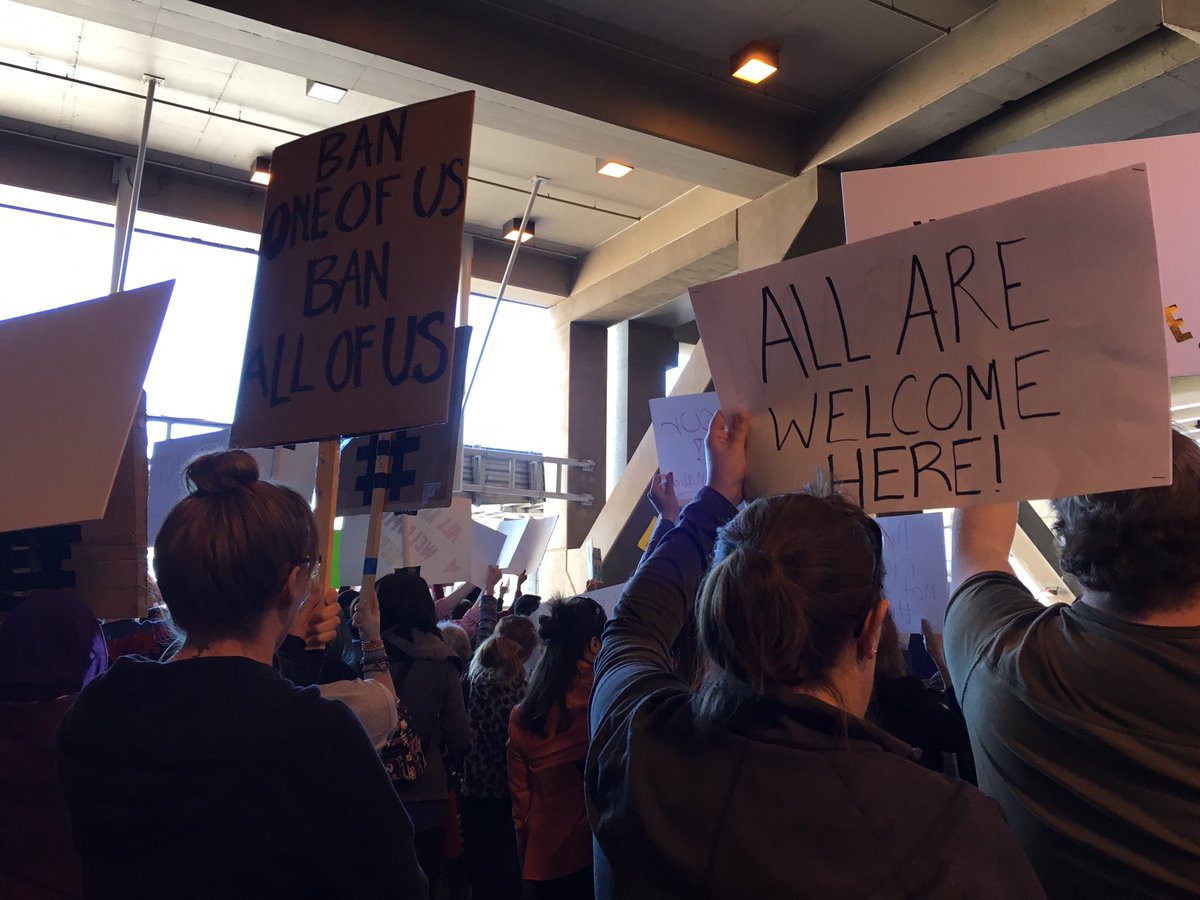 BAN
ONE OF US
BAN
ALL OF US
#
ALL ARE
WELCOME
HERE!